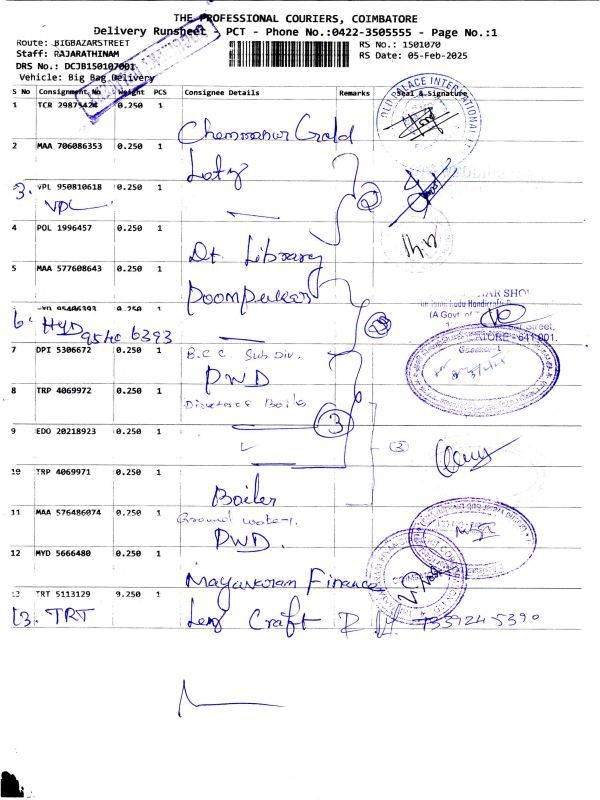 THE PROFESSIONAL COURIERS, COIMBATORE
Delivery Runsheet - PCT - Phone No.:0422-3505555 - Page No.:1
Route: BIGBAZARSTREET
RS No.: 1501070
Staff: RAJARATHINAM
RS Date: 05-Feb-2025
DRS No.: DCJB150107001
Vehicle: Big Bag Delivery
S No Consignment No Weight PCS Consignee Details Remarks Seal & Signature
1 TCR 29875424 0.250 1
Chemmanur Gold
2 MAA 706086353 0.250 1
Lotz
3. VPL 950810618 0.250 1
VPL
4 POL 1996457 0.250 1
Dt. Library
5 MAA 577608643 0.250 1
Poompukar
0.250 1
6. HYD 95406393
7 DPI 5306672 0.250 1 B.C.C. Sub Div.
PWD
8 TRP 4069972 0.250 1
Boiler
9 EDO 20218923 0.250 1
3
10 TRP 4069971 0.250 1
Boiler
11 MAA 576486074 0.250 1 Ground water.
PWD.
12 MYD 5666480 0.250 1
Mayavaram Finance
13 TRT 5113129 9.250 1
13. TRT Craft
OLD PALACE INTERNATIONAL
(A Govt of
Street,
641 001.